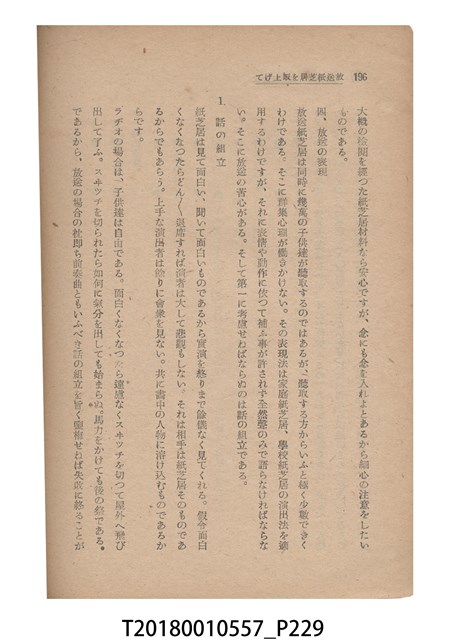 196　放送紙芝居を取上げて
大概の檢閲を經つた紙芝居材料なら安心ですが、念にも念を入れよとあるから細心の注意をしたい
ものである。
四、放送の表現
放送紙芝居は同時に幾萬の子供達が聽取するのではあるが、聽取する方からいふと極く少數できく
わけである。そこに群集心理が働きかけない。その表現法は家庭紙芝居、學校紙芝居の演出法を適
用するわけですが、それに表情や動作に依つて補ふ事が許されず全然聲のみで語らなければならな
い。そこに放送の苦心がある。そして第一に考慮せねばならぬのは話の組立である。
1. 話の組立
紙芝居は見て面白い、聞いて面白いものであるから實演を終りまで餘儀なく見てくれる。假令面白
くなくなつたらどん〳〵退席すれば演者は大して悲觀もしない。それは相手は紙芝居そのものであ
るからでもあらう。上手な演出者は餘りに會衆を見ない。共に畫中の人物に溶け込むものであるか
らです。
ラヂオの場合は、子供達は自由である。面白くなくなつたら遠慮なくスヰツチを切つて屋外へ飛び
出して了ふ。スヰツチを切られたら如何に氣分を出しても始まらぬ。馬力をかけても後の祭である。
であるから、放送の場合の枕即ち前奏曲ともいふべき話の組立を旨く
せねば失敗に終ることが
T20180010557_P229